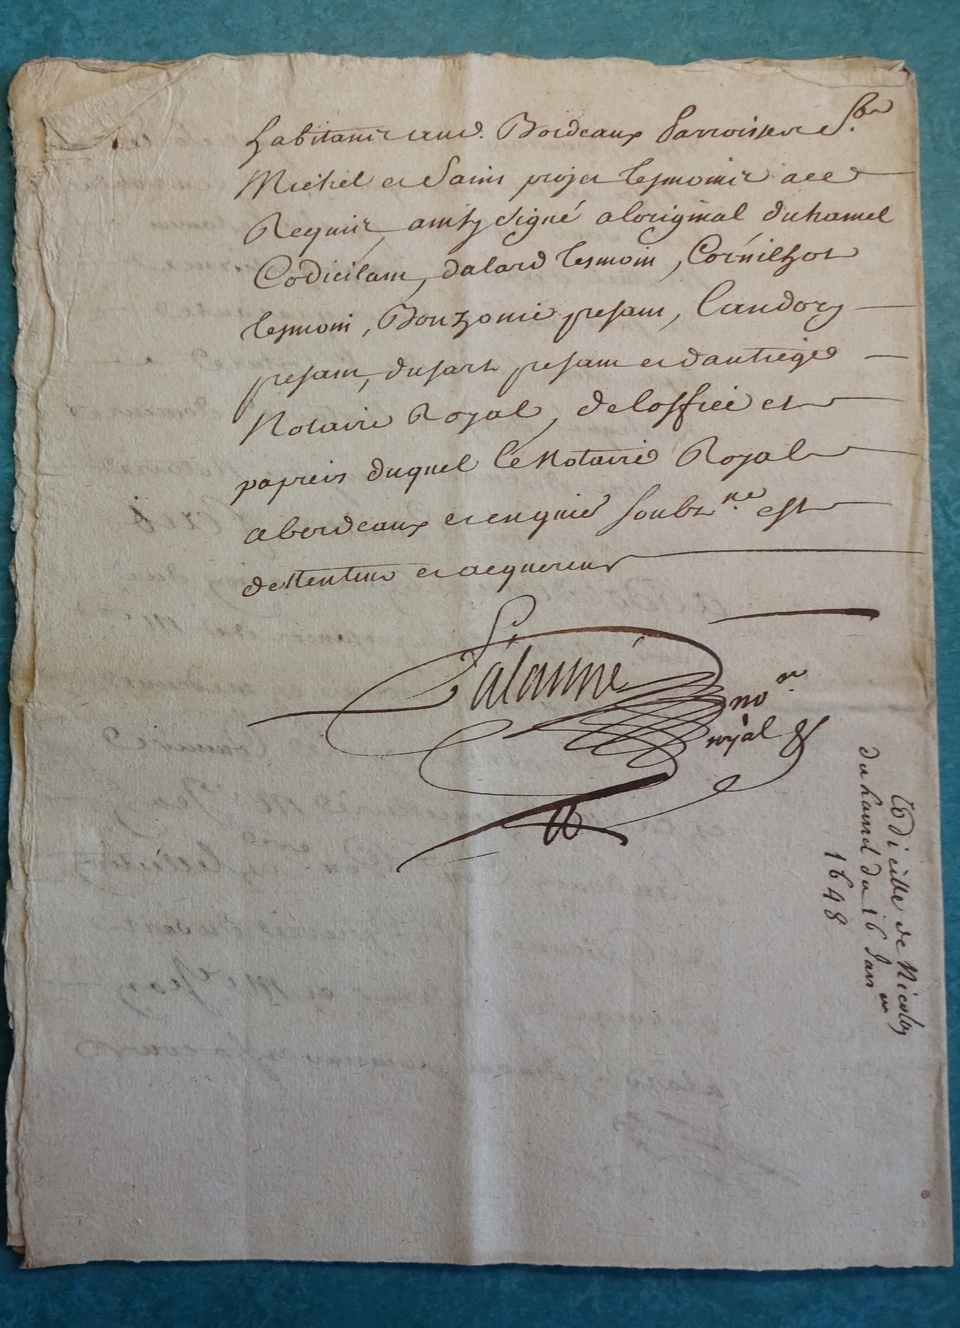 habitans aud. Bordeaux Parroisses Ste
Michel et Saint projet tesmoins a ce
Requis, ainsy signé a loriginal duhamel
Codicilant, dalard tesmoin, Cornilhot
tesmoin, Bonzonie present, Landory
present, dusart present et dautiege
Notaire Royal, de loffice et
papiers duquel le Notaire Royal
a bordeaux et en guienne soubzne est
dettenteur et acquereur
Lalanne
nore
royal
Codicille de Nicolas
duhamel du 16 Janer
1648